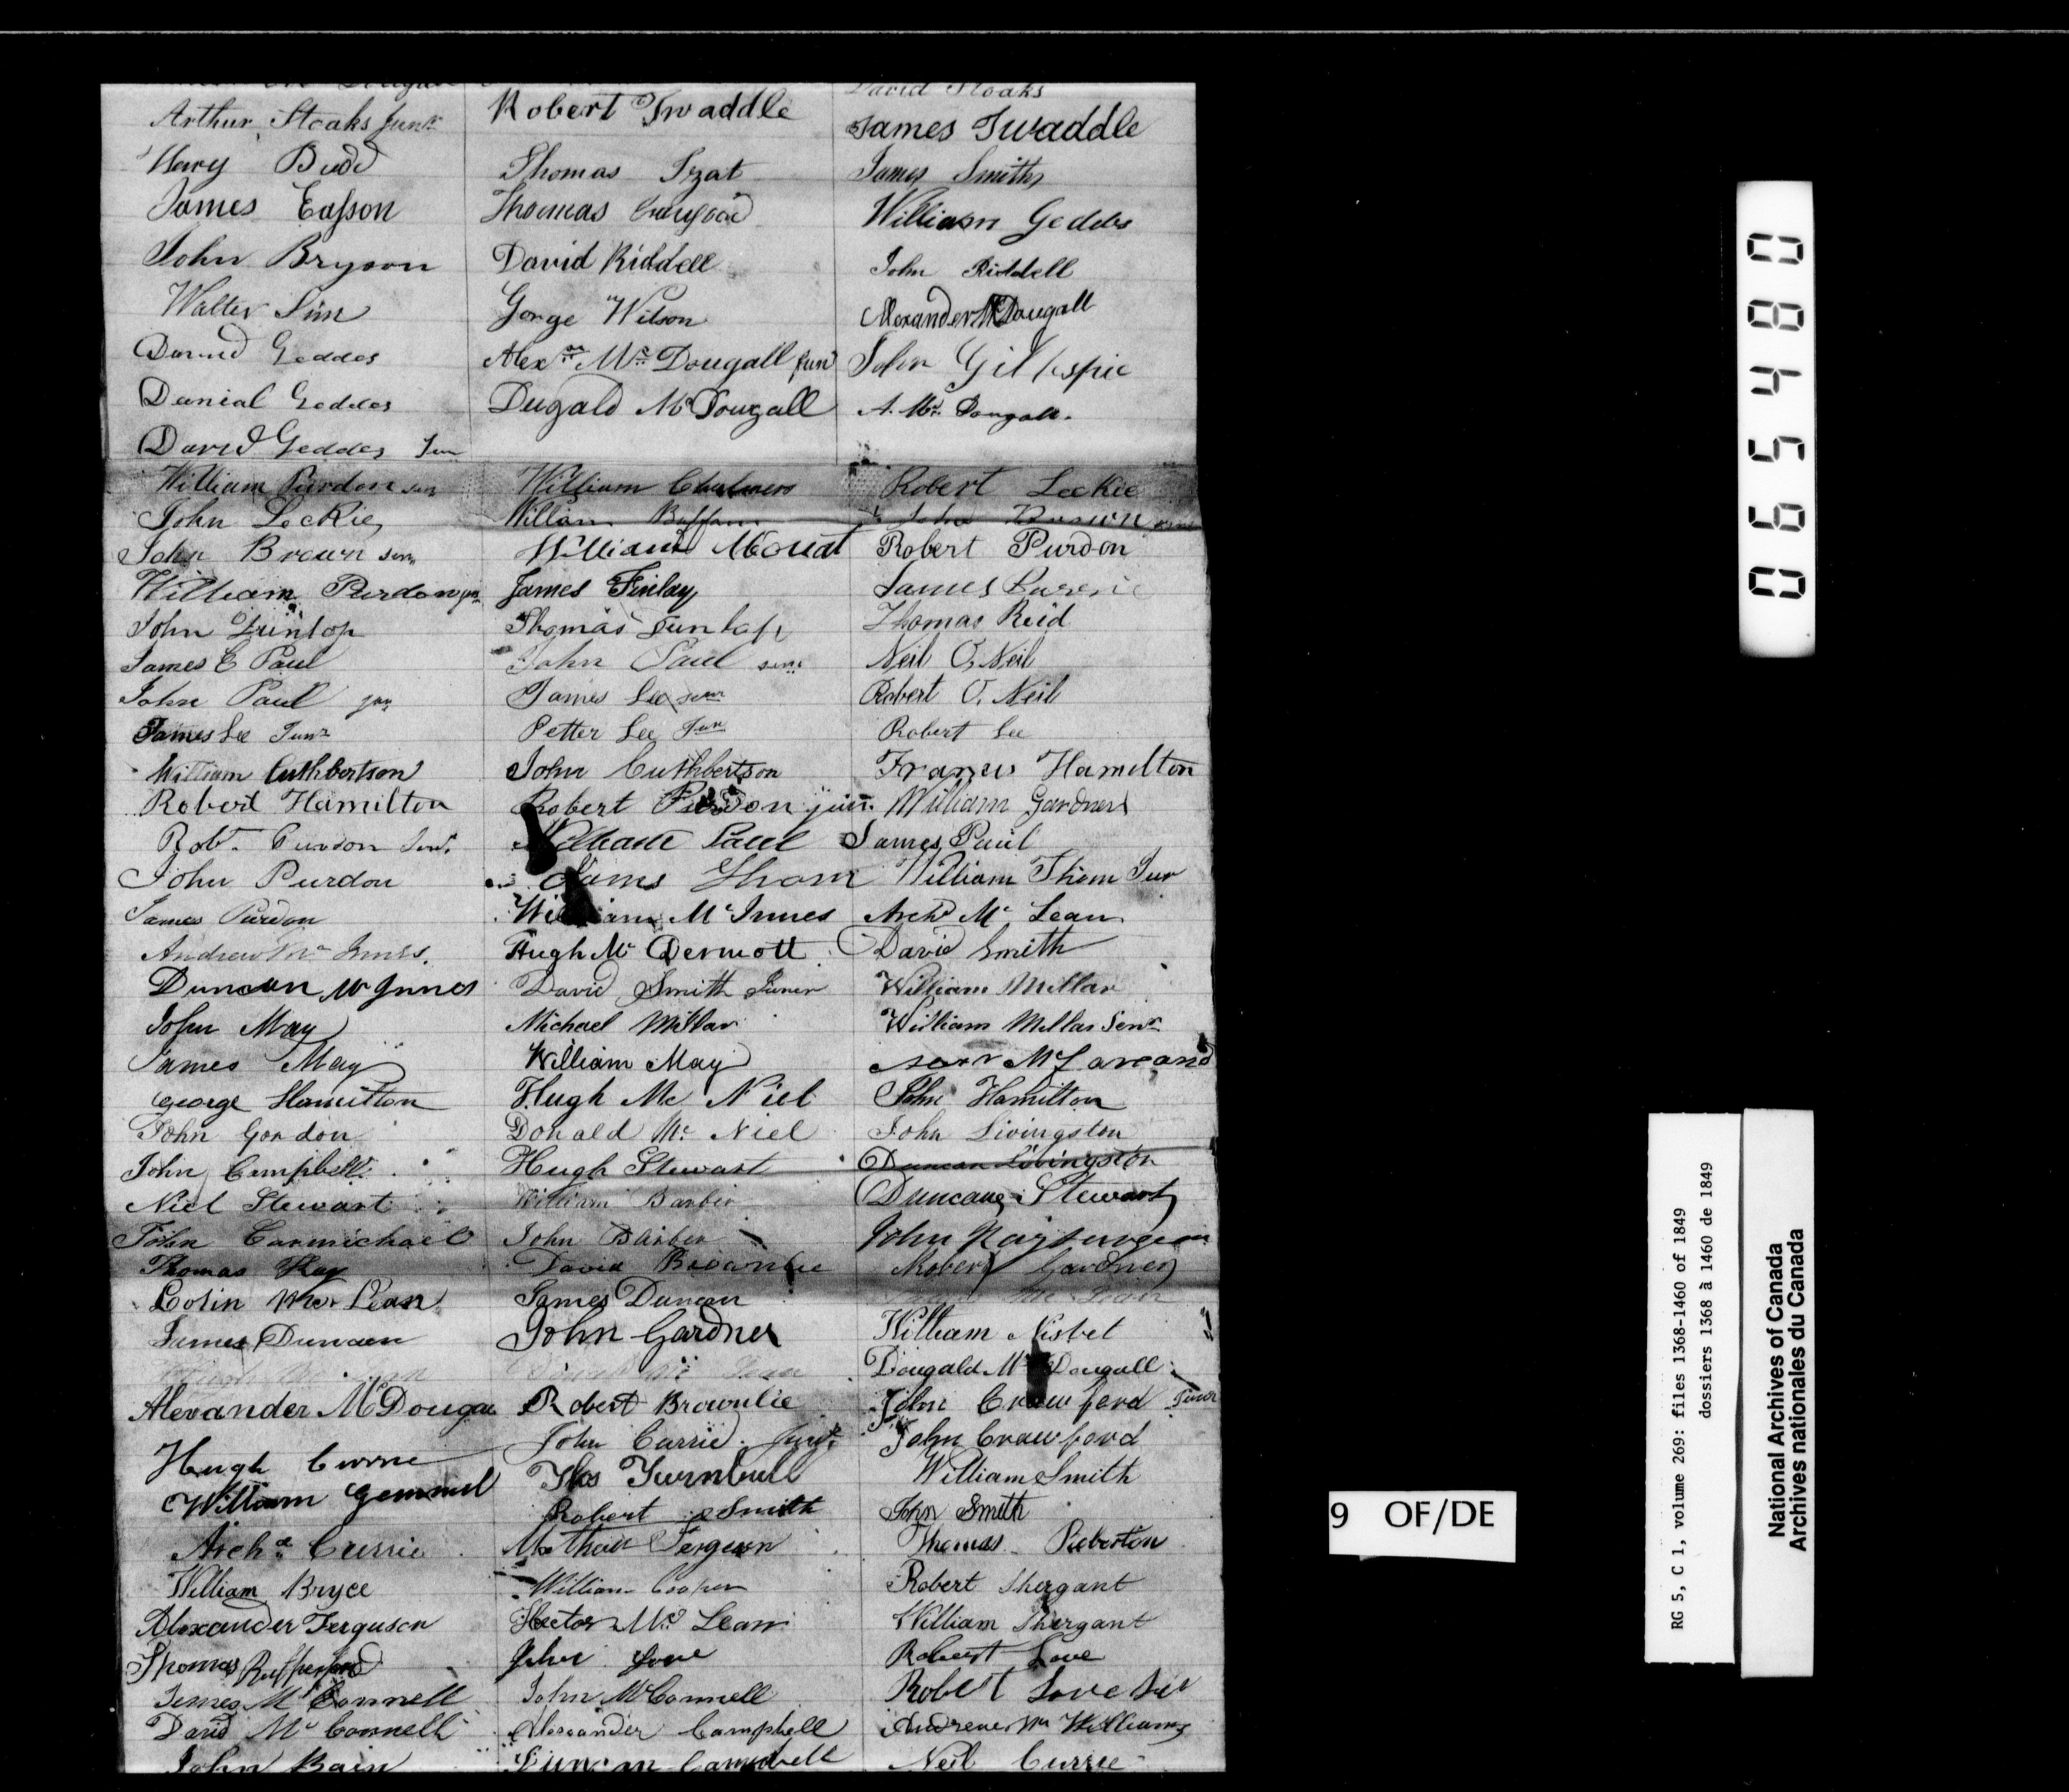 Arthur Stoaks Junr Robert Twaddle James Twaddle
Mary Budd Thomas Tzat James Smith
James Easson Thomas William Geddes
John Bryson David Riddell John Riddell
Walter Sim George Wilson Alexander McDougall
David Geddes Alexr McDougall Jun John Gillespie
Danial Geddes Dugald McDougall A. Mc Dougall
David Geddes Jun
William Purdon sen William Chalmers Robert Leckie
John Leckie William John Brown
John Brown senr William Mouat Robert Purdon
William Purdon jun James Finlay James
John Dunlop Thomas Dunlop Thomas Reid
James C Paul John Paul senr Neil O, Neil
John Paul jun James Lee senr Robert O, Neil
James Lee Junr Petter Lee Jun Robert Lee
William Cuthbertson John Cuthbertson Francis Hamilton
Robert Hamilton Robert Purdon jun. William Gardner
Robt. Purdon Senr. William Paul James Paul
John Purdon James Thom William Thom Jur
James Purdon William McInnes Archd Mc Lean
Andrew Mc Innes. Hugh Mc Dermott David Smith
Duncan McInnes David Smith Juner William Millar
John May Michael Millar William Millar Senr
James May William May
George Hamilton Hugh Mc Niel John Hamilton
John Gordon Donald Mc Niel John Livingston
John Campbell Hugh Stewart Duncan Livingston
Niel Stewart William Barber Duncan Stewart
John Carmichael John Barber John
Thomas Hay David Brownlie Robert Gardner
Colin Mc Lean James Duncan
James Duncan John Gardner William Nisbet
Dougald Mc Dougall
Alexander McDougall Robert Brownlie John Crawford Junr
Hugh Currie John Currie Junr. John Crawford
William Gemmel Thos Turnbull William Smith
Robert Smith John Smith
Archd Currie Mathew Ferguson Thomas
William Bryce William Cooper Robert Shergant
Alexander Ferguson Hector Mc Lean William Shergant
Thomas John Love Robert Love
James Mc Connell John McConnell Robert Love
David Mc Connell Alexander Campbell Andrew Mc Williams
John Bain Duncan Campbell Neil Currie
065480
9 OF/DE
RG 5, C 1, volume 269: files 1368-1460 of 1849
dossiers 1368 à 1460 de 1849
National Archives of Canada
Archives nationales du Canada